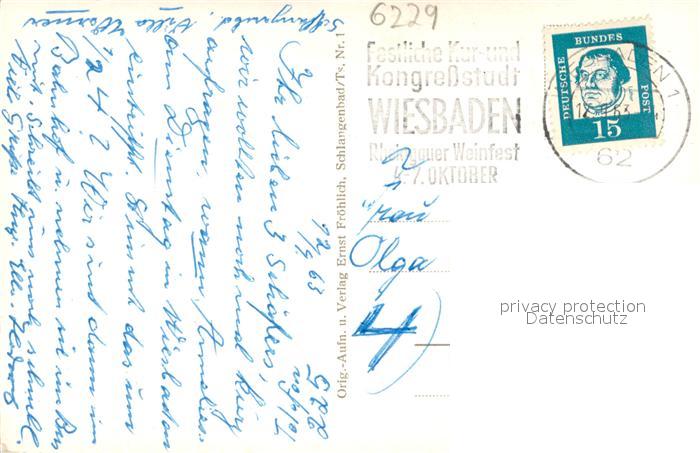 6229
Festliche Kur- und
Kongreßstadt
WIESBADEN
Rheingauer Weinfest
4.-7. OKTOBER
DEUTSCHE BUNDESPOST
15
62
Frau
Olga
4)
privacy protection
Datenschutz
Orig.-Aufn. u. Verlag Ernst Fröhlich, Schlangenbad/Ts. Nr. 1
Schlangenbad, Villa Werner
12/9 63
Ihr lieben 3 Schäfers,
wir wollten noch mal kurz
anfragen, wann Annelies
am Dienstag in Wiesbaden
eintrifft. Es muß das um
1/2 4 ? Wir sind dann im
Bahnhof u. nehmen sie im Bus
mit. Schreibt uns noch schnell.
Viele Grüße